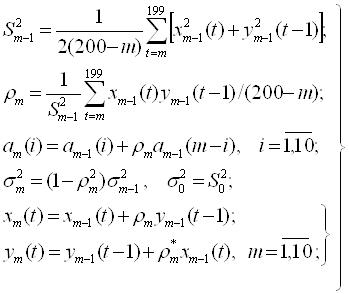 S²ₘ₋₁ = 1/(2(200−m)) ∑ₜ₌ₘ¹⁹⁹ [x²ₘ₋₁(t) + y²ₘ₋₁(t−1)];
ρₘ = 1/S²ₘ₋₁ ∑ₜ₌ₘ¹⁹⁹ xₘ₋₁(t)yₘ₋₁(t−1)/(200−m);
aₘ(i) = aₘ₋₁(i) + ρₘaₘ₋₁(m−i), i = 1,10;
σ²ₘ = (1−ρ²ₘ)σ²ₘ₋₁, σ²₀ = S²₀;
xₘ(t) = xₘ₋₁(t) + ρₘyₘ₋₁(t−1);
yₘ(t) = yₘ₋₁(t−1) + ρ*ₘxₘ₋₁(t), m = 1,10;